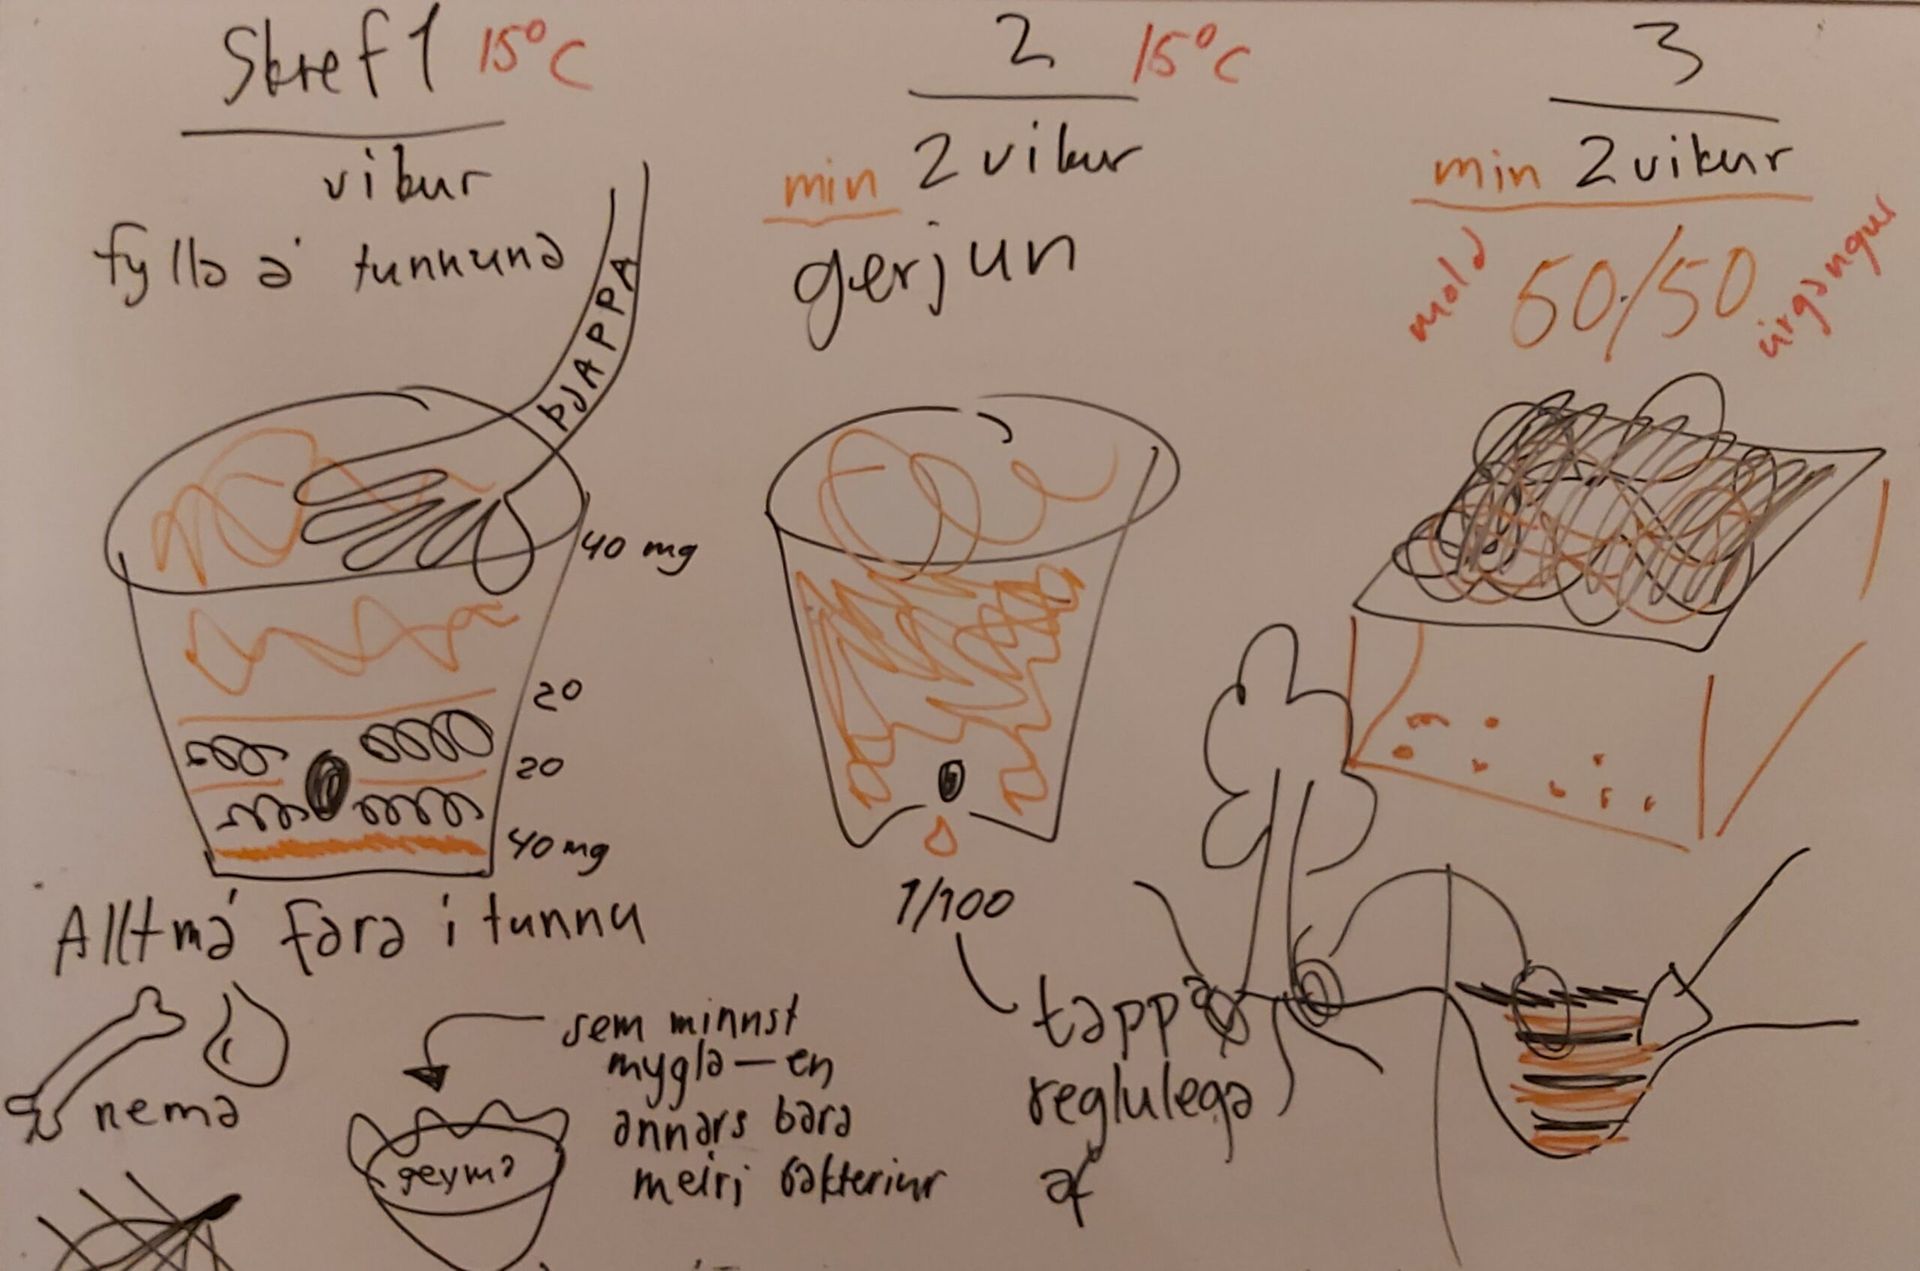 Skref 1 15°C
vikur
fylla á tunnuna
ÞJAPPA
40 mg
20
20
40 mg
Allt má fara í tunnu
nema
geyma
sem minnst
mygla – en
annars bara
meiri bakteriur
2 15°C
min 2 vikur
gerjun
1/100
tappa
reglulega
af
3
min 2 vikur
mold 50/50 úrgangur